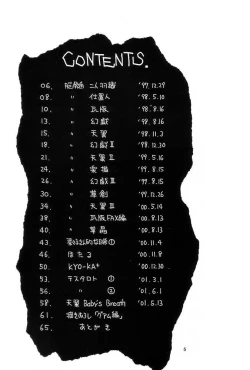 CONTENTS.
06. 二人羽織 '97.12.29
08. 〃 仕置人 '98.5.10
10. 〃 瓦版 '98.8.16
13. 〃 幻戯 '98.8.16
15. 〃 天翼 '98.11.3
18. 〃 幻戯Ⅱ '98.12.30
21. 〃 天翼Ⅱ '99.5.16
24. 〃 '99.8.15
26. 〃 幻戯Ⅲ '99.8.15
30. 〃 '99.12.26
34. 〃 天翼Ⅲ '00.5.14
38. 〃 瓦版FAX編 '00.8.13
40. 〃 '00.8.13
43. ① '00.11.4
46. ほたる '00.11.8
50. KYO-KA+ '00.12.30
53. テスタロト ① '01.3.1
56. 〃 ② '01.6.1
58. 天翼 Baby's Breath '01.6.13
61. 描き下ろし「グァム編」
65. あとがき
5